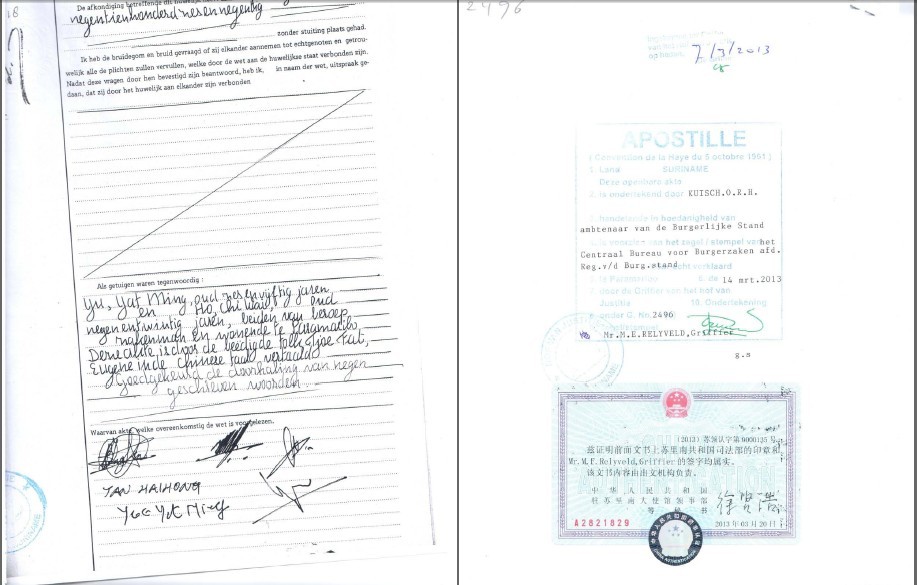 18
De afkondiging betreffende dit huwelijk
negentienhonderd zes en negentig
zonder stuiting plaats gehad.
Ik heb de bruidegom en bruid gevraagd of zij elkander aannemen tot echtgenoten en getrou-
welijk alle de plichten zullen vervullen, welke door de wet aan de huwelijkse staat verbonden zijn.
Nadat deze vragen door hen bevestigd zijn beantwoord, heb ik, in naam der wet, uitspraak ge-
daan, dat zij door het huwelijk aan elkander zijn verbonden
Als getuigen waren tegenwoordig:
Yu, Yat Ming, oud zes en vijftig jaren,
en Ho, Chi Wais, oud
negenentwintig jaren, beiden van beroep
en wonende te Paramaribo,
Deze akte is door de beedigde tolk Tjoe Fat,
Eugene in de Chinese taal vertaald
Goedgekeurd de doorhaling van negen
geschreven woorden
Waarvan akte, welke overeenkomstig de wet is voorgelezen.
YAN HAIHONG
Yue Yat Ming
2496
7/3/2013
APOSTILLE
( Convention de la Haye du 5 octobre 1961 )
1. Land SURINAME
Deze openbare akte
2. is ondertekend door KUISCH.O.R.H.
3. handelende in hoedanigheid van
ambtenaar van de Burgerlijke Stand
4. is voorzien van het zegel / stempel van het
Centraal Bureau voor Burgerzaken afd.
Reg.v/d Burg.stand echt verklaard
5. te Paramaribo 6. de 14 mrt.2013
7. door de Griffier van het hof van
Justitie 10. Ondertekening
8. onder G. No. 2496
Mr.M.E.RELYVELD,Griffier
g.s
(2013) 苏领认字第0000135号
兹证明前面文书上苏里南共和国司法部的印章和
Mr.M.E.Relyveld,Griffier 的签字均属实。
该文书内容由出文机构负责。
中华人民共和国
驻苏里南大使馆领事部
等 秘书
A2821829
2013年03月20日